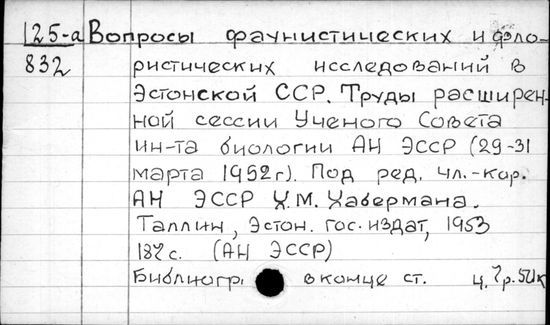 125-а Вопросы фаунистических и фло-
832 ристических исследований в
Эстонской ССР. Труды расширен-
ной сессии Ученого Совета
ин-та биологии АН ЭССР (29-31
марта 1952 г). Под ред. чл.-кор.
АН ЭССР Х.М. Хабермана.
Таллин, Эстон. гос. издат, 1953
187 с. (АН ЭССР)
Библиогр. в конце ст. ц.